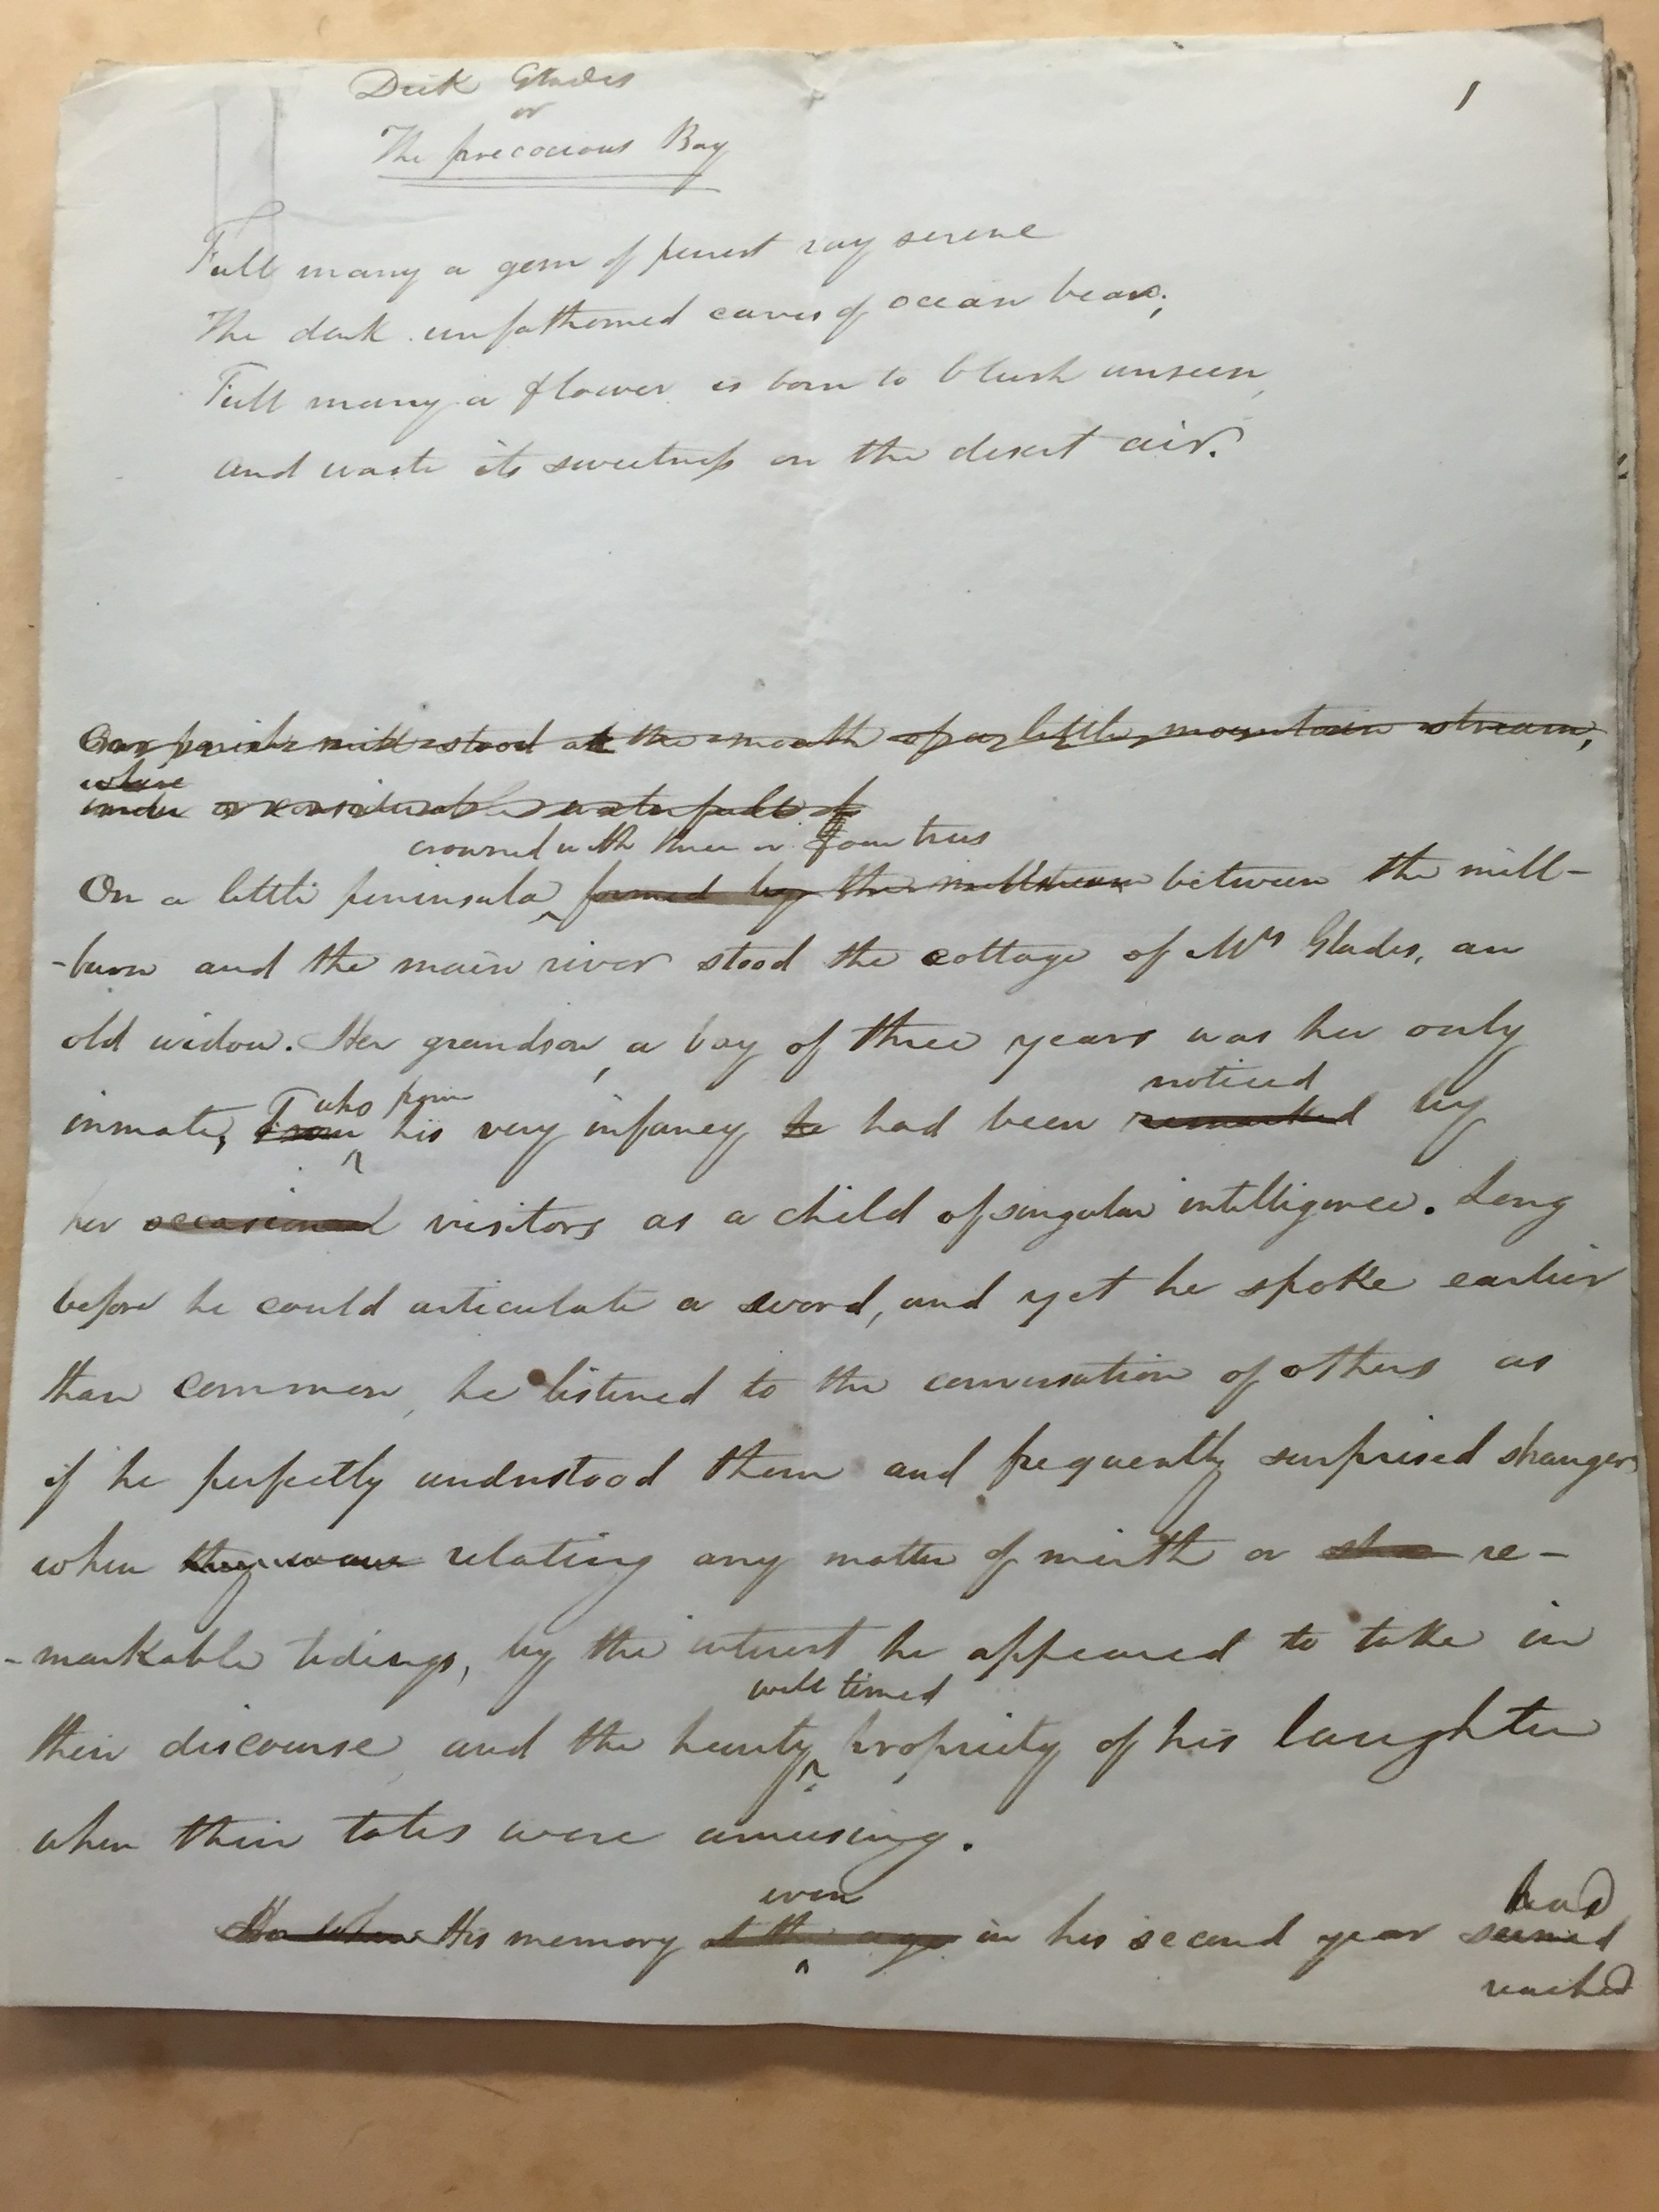 Dick Glades
or
The precocious Boy
1
Full many a gem of purest ray serene
The dark unfathomed caves of ocean bear;
Full many a flower is born to blush unseen,
And waste its sweetness on the desert air.
Our parish mill stood at the mouth of a little mountain stream,
where
under a considerable waterfall of
crowned with three or four trees
On a little peninsula formed by the millstream between the mill-
-burn and the main river stood the cottage of Mrs Glades, an
old widow. Her grandson, a boy of three years was her only
who from noticed
inmate, From his very infancy he had been remarked by
her occasional visitors as a child of singular intelligence. Long
before he could articulate a word, and yet he spoke earlier
than common, he listened to the conversation of others as
if he perfectly understood them and frequently surprised strangers
when they were relating any matter of mirth or re-
-markable tidings, by the interest he appeared to take in
well timed
their discourse, and the hearty propriety of his laughter
when their tales were amusing.
even had
When His memory at the age in his second year seemed
reached